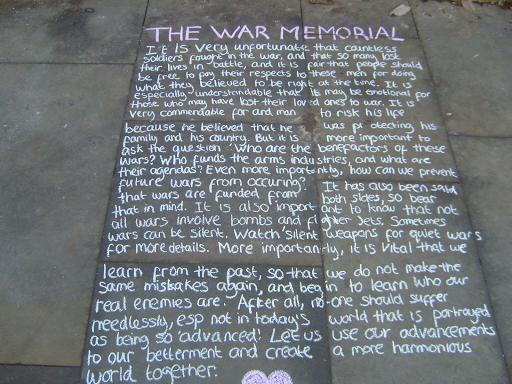 THE WAR MEMORIAL
It is very unfortunate that countless
soldiers fought in the war, and that so many lost
their lives in battle, and it is fair that people should
be free to pay their respects to these men for doing
what they believed to be right at the time. It is
especially understandable that it may be emotional for
those who may have lost their loved ones to war. It is
very commendable for and man to risk his life
because he believed that he was protecting his
family and his country. But it is more important to
ask the question 'Who are the benefactors of these
wars? Who funds the arms industries, and what are
their agendas? Even more importantly, how can we prevent
future wars from occuring? It has also been said
that wars are funded from both sides, so bear
that in mind. It is also important to know that not
all wars involve bombs and fighter jets. Sometimes
wars can be silent. Watch 'silent weapons for quiet wars
for more details. More importantly, it is vital that we
learn from the past, so that we do not make the
same mistakes again, and begin to learn who our
real enemies are. After all, no-one should suffer
needlessly, esp not in today's world that is portrayed
as being so 'advanced'. Let us use our advancements
to our betterment and create a more harmonious
world together.